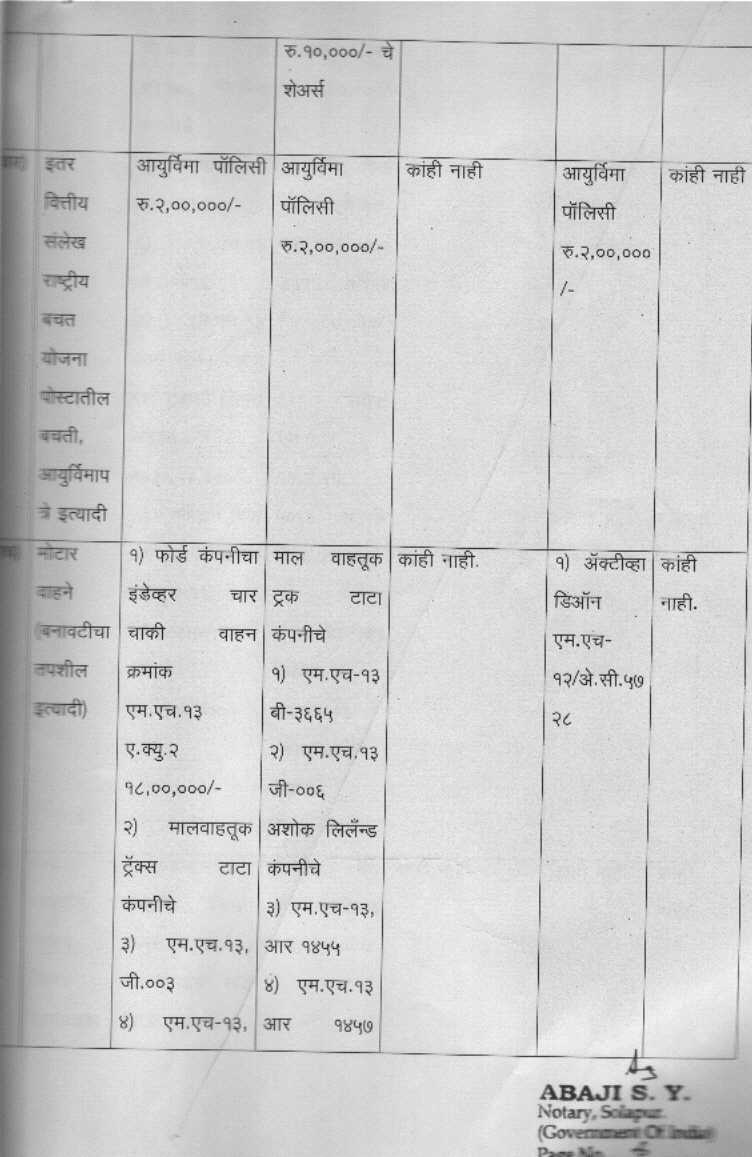 रु.१०,०००/- चे
शेअर्स
इतर
वित्तीय
संलेख
राष्ट्रीय
बचत
योजना
पोस्टातील
बचती,
आयुर्विमाप
त्रे इत्यादी
आयुर्विमा पॉलिसी
रु.२,००,०००/-
आयुर्विमा
पॉलिसी
रु.२,००,०००/-
कांही नाही
आयुर्विमा
पॉलिसी
रु.२,००,०००
/-
कांही नाही
मोटार
वाहने
(बनावटीचा
तपशील
इत्यादी)
१) फोर्ड कंपनीचा
इंडेव्हर चार
चाकी वाहन
क्रमांक
एम.एच.१३
ए.क्यु.२
१८,००,०००/-
२) मालवाहतूक
ट्रॅक्स टाटा
कंपनीचे
३) एम.एच.१३,
जी.००३
४) एम.एच-१३,
माल वाहतूक
ट्रक टाटा
कंपनीचे
१) एम.एच-१३
बी-३६६५
२) एम.एच.१३
जी-००६
अशोक लिलँन्ड
कंपनीचे
३) एम.एच-१३,
आर १४५५
४) एम.एच.१३
आर १४५७
कांही नाही.
१) ॲक्टीव्हा
डिऑन
एम.एच-
१२/अे.सी.५७
२८
कांही
नाही.
ABAJI S. Y.
Notary, Solapur.
(Government Of India)
Page No.